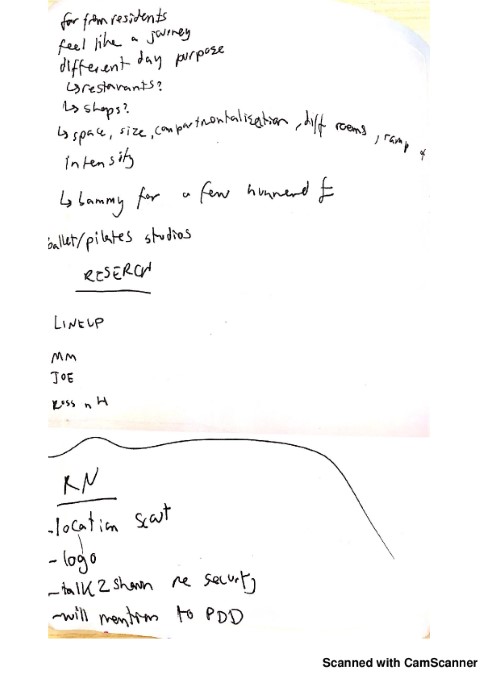 far from residents
feel like a journey
different day purpose
↳ restaurants?
↳ shops?
↳ space, size, compartmontalisation, diff rooms, ramp &
intensity
↳ bammy for a few hunnerd £
ballet/pilates studios
RESERCH
LINEUP
MM
JOE
Ross n H
RN
- location scout
- logo
- talk 2 shawn re security
- will mention to PDD
Scanned with CamScanner